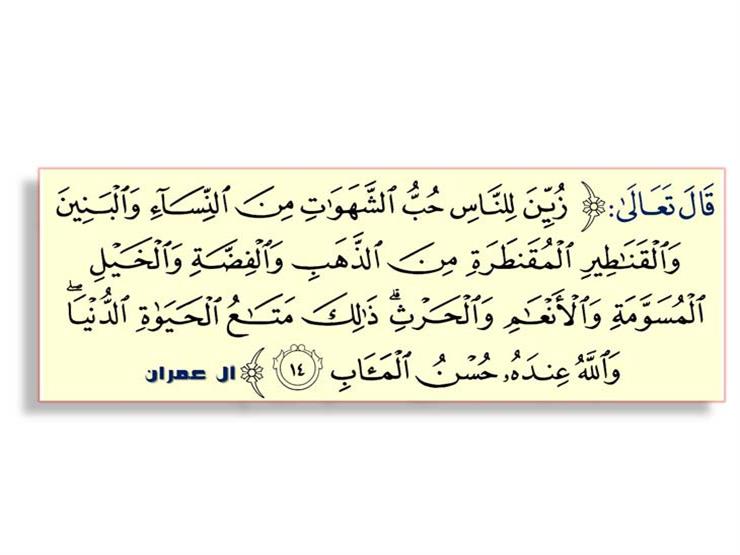 قَالَ تَعَالَىٰ: ﴿ زُيِّنَ لِلنَّاسِ حُبُّ ٱلشَّهَوَٰتِ مِنَ ٱلنِّسَآءِ وَٱلۡبَنِينَ
وَٱلۡقَنَٰطِيرِ ٱلۡمُقَنطَرَةِ مِنَ ٱلذَّهَبِ وَٱلۡفِضَّةِ وَٱلۡخَيۡلِ
ٱلۡمُسَوَّمَةِ وَٱلۡأَنۡعَٰمِ وَٱلۡحَرۡثِۗ ذَٰلِكَ مَتَٰعُ ٱلۡحَيَوٰةِ ٱلدُّنۡيَاۖ
وَٱللَّهُ عِندَهُۥ حُسۡنُ ٱلۡمَـَٔابِ ١٤ ﴾ ال عمران